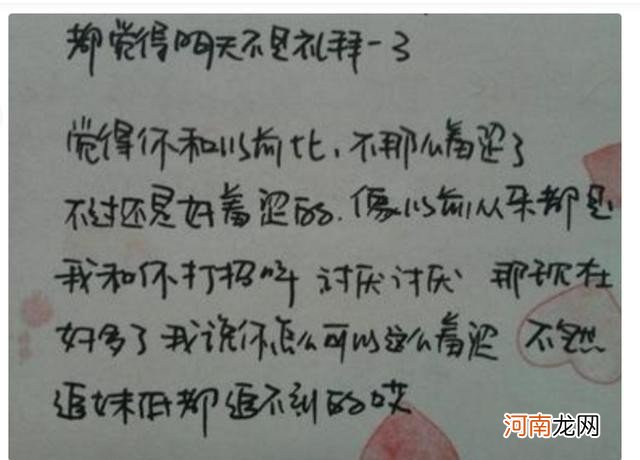 都觉得明天不是礼拜一了
觉得你和以前比、不那么羞涩了
不过还是好羞涩的.像以前从来都是
我和你打招呼 讨厌讨厌 那现在
好多了我说你怎么可以这么羞涩 不然
追妹低都追不到的哎
河南龙网